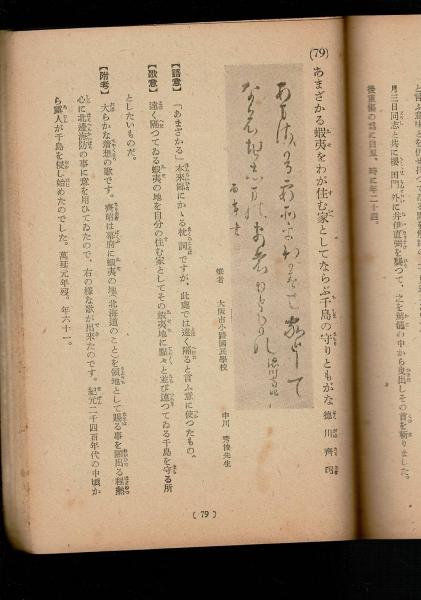 と言ふ
月三日同志と共に櫻田門外に井伊直弼を襲つて、之を駕籠の中から曳出しその首を斬りました。
後重傷の為に自刃、時に年二十四。
(79) あまざかる蝦夷をわが住む家としてならぶ千島の守りともがな 德川齊昭
揮者 大阪市小路國民學校 中川 先生
【語意】 「あまざかる」本來鄙にかゝる枕詞ですが、此處では遠く隔ると言ふ意に使つたもの。
【歌意】 遠く隔つてゐる蝦夷の地を自分の住む家としてその蝦夷地に點々と並び連つてゐる千島を守る所
としたいものだ。
【附考】 大らかな着想の歌です。齊昭は幕府に蝦夷の地(北海道のこと)を領地として賜る事を願出る程熱
心に北邊海防の事に意を用ひてゐたので、右の樣な歌が出來たのです。紀元二千四百年代の中頃か
ら露人が千島を侵し始めたのでした。萬延元年歿。年六十一。
(79)